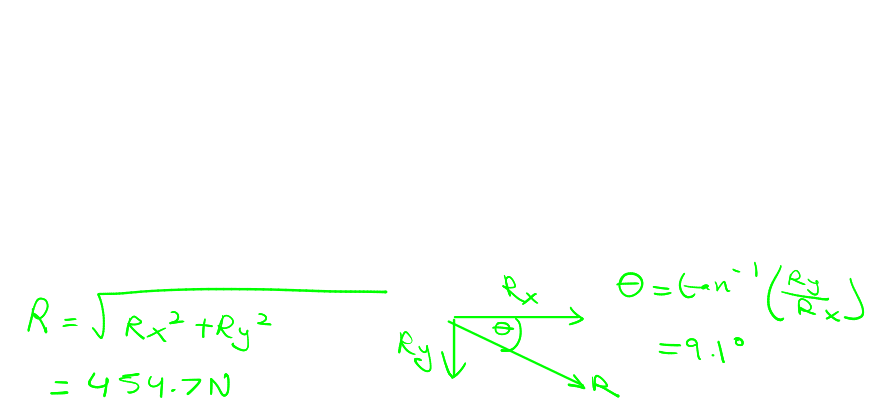 R = √(Rx² + Ry²)
= 454.7N
Rx
θ
Ry
R
θ = tan⁻¹(Ry/Rx)
= 9.1°